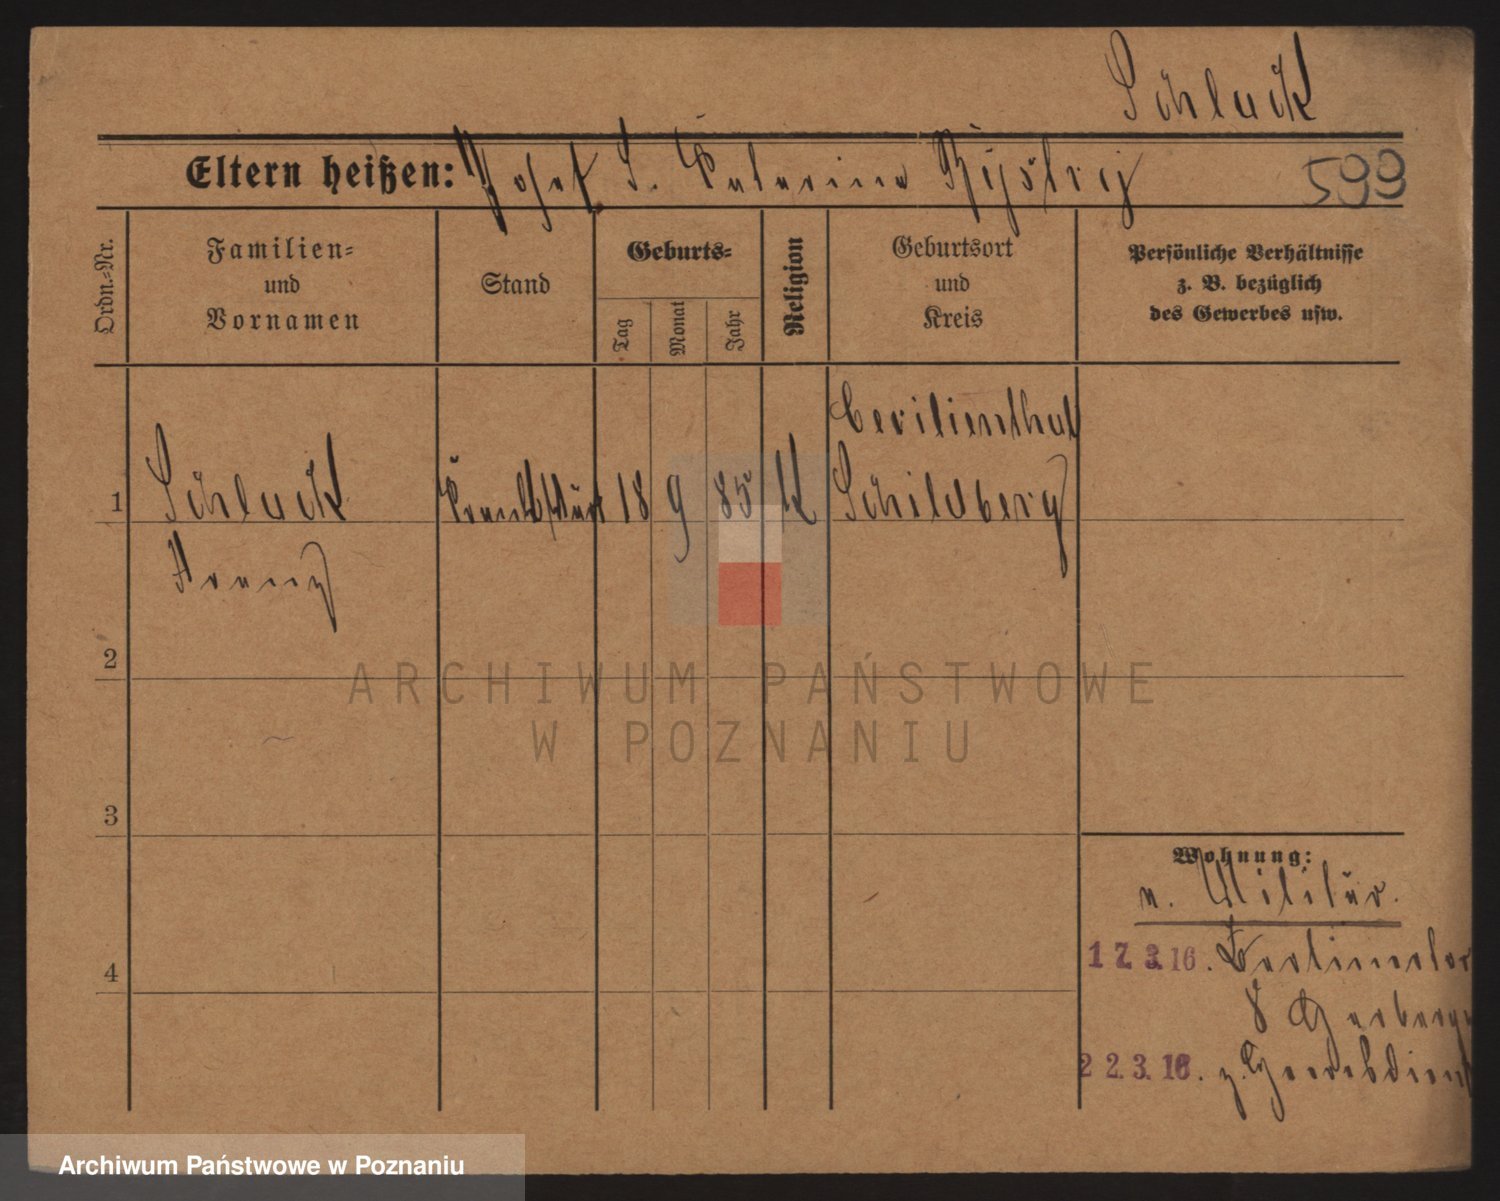 Schlack
Eltern heißen: Josef S. Catarina Bystry
599
Ordn.-Nr.
Familien-
und
Vornamen
Stand
Geburts-
Tag
Monat
Jahr
Religion
Geburtsort
und
Kreis
Persönliche Verhältnisse
z. B. bezüglich
des Gewerbes usw.
Cecilienthal
1 Schlack 18 9 85 K Schildberg
Franz
2
3
4
Wohnung:
v. Militär.
17.3.16. Berlinertor
8 Herberge
22.3.16. z.
ARCHIWUM PAŃSTWOWE
W POZNANIU
Archiwum Państwowe w Poznaniu